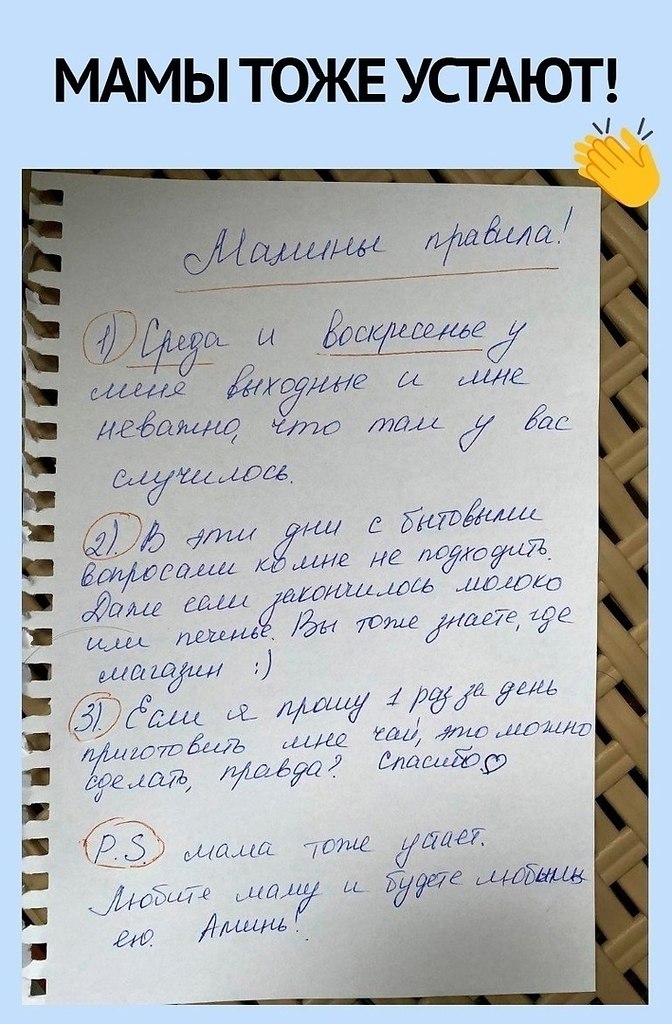 МАМЫ ТОЖЕ УСТАЮТ!
Мамины правила!
1) Среда и воскресенье у
меня выходные и мне
неважно, что там у вас
случилось.
2). В эти дни с бытовыми
вопросами ко мне не подходить.
Даже если закончилось молоко
или печенье. Вы тоже знаете, где
магазин :)
3). Если я прошу 1 раз за день
приготовить мне чай, это можно
сделать, правда? Спасибо♡
P.S. мама тоже устает.
Любите маму и будете любимы
ею. Аминь!